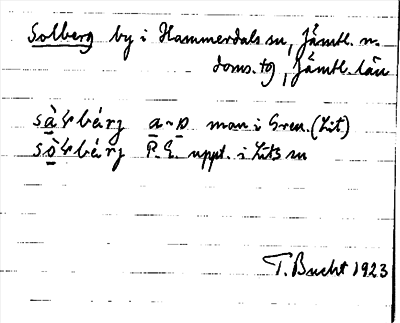 Solberg by i Hammerdals sn, Jämtl. n.
doms. tg, Jämtl. län
sàɬbérj a-o man i Gren. (Lit)
sòɬbérj P.E. uppt. i Lits sn
T. Bucht 1923